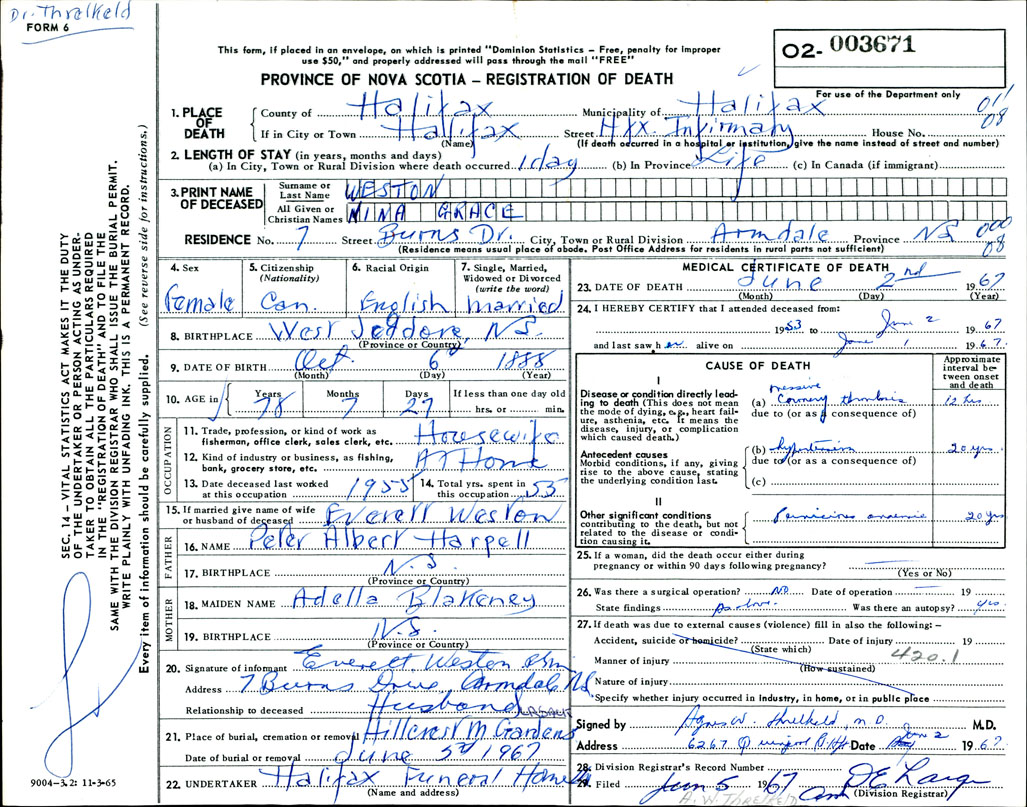 Dr. Threlkeld
FORM 6
O2- 003671
This form, if placed in an envelope, on which is printed "Dominion Statistics – Free, penalty for improper
use $50," and properly addressed will pass through the mail "FREE"
PROVINCE OF NOVA SCOTIA – REGISTRATION OF DEATH
For use of the Department only
011
08
1. PLACE OF DEATH County of Halifax Municipality of Halifax
If in City or Town Halifax Street Hfx. Infirmary House No.
(Name) (If death occurred in a hospital or institution, give the name instead of street and number)
2. LENGTH OF STAY (in years, months and days)
(a) In City, Town or Rural Division where death occurred 1 day (b) In Province Life (c) In Canada (if immigrant)
3. PRINT NAME OF DECEASED Surname or Last Name WESTON
All Given or Christian Names NINA GRACE
RESIDENCE No. 7 Street Burns Dr. City, Town or Rural Division Armdale Province NS
000
08
(Residence means usual place of abode. Post Office Address for residents in rural parts not sufficient)
4. Sex Female
5. Citizenship (Nationality) Can.
6. Racial Origin English
7. Single, Married, Widowed or Divorced (write the word) married
8. BIRTHPLACE West Jeddore, NS.
(Province or Country)
9. DATE OF BIRTH Oct. 6 1888
(Month) (Day) (Year)
10. AGE in Years 78 Months 7 Days 27 If less than one day old
hrs. or min.
OCCUPATION
11. Trade, profession, or kind of work as fisherman, office clerk, sales clerk, etc. Housewife
12. Kind of industry or business, as fishing, bank, grocery store, etc. At Home
13. Date deceased last worked at this occupation 1955
14. Total yrs. spent in this occupation 55
15. If married give name of wife or husband of deceased Everett Weston
FATHER
16. NAME Peter Albert Harpell
17. BIRTHPLACE N.S.
(Province or Country)
MOTHER
18. MAIDEN NAME Adella Blakeney
19. BIRTHPLACE N.S.
(Province or Country)
20. Signature of informant Everett Weston
Address 7 Burns Drive Armdale NS.
Relationship to deceased Husband
21. Place of burial, cremation or removal Hillcrest M. Gardens
Date of burial or removal June 5th 1967
22. UNDERTAKER Halifax Funeral Home
(Name and address)
MEDICAL CERTIFICATE OF DEATH
23. DATE OF DEATH June 2nd 1967
(Month) (Day) (Year)
24. I HEREBY CERTIFY that I attended deceased from:
1953 to June 2 1967
and last saw her alive on June 1 1967
CAUSE OF DEATH
Approximate interval between onset and death
I
Disease or condition directly leading to death (This does not mean the mode of dying, e.g., heart failure, asthenia, etc. It means the disease, injury, or complication which caused death.)
(a) massive Coronary thrombosis 12 hrs
due to (or as a consequence of)
Antecedent causes
Morbid conditions, if any, giving rise to the above cause, stating the underlying condition last.
(b) hypertension 20 yrs.
due to (or as a consequence of)
(c)
II
Other significant conditions contributing to the death, but not related to the disease or condition causing it.
Pernicious anaemia 20 yrs
25. If a woman, did the death occur either during
pregnancy or within 90 days following pregnancy?
(Yes or No)
26. Was there a surgical operation? NO Date of operation 19
State findings as above. Was there an autopsy? yes.
27. If death was due to external causes (violence) fill in also the following: –
Accident, suicide or homicide? Date of injury 19
(State which)
420.1
Manner of injury
(How sustained)
Nature of injury
Specify whether injury occurred in industry, in home, or in public place
Signed by Agnes W. Threlkeld, M.D. M.D.
Address 6267 Date June 2 1967
28. Division Registrar's Record Number
29. Filed Jun 5 1967
(Division Registrar)
A.W. THRELKELD
9004-3.2: 11-3-65
SEC. 14 – VITAL STATISTICS ACT MAKES IT THE DUTY
OF THE UNDERTAKER OR PERSON ACTING AS UNDER-
TAKER TO OBTAIN ALL THE PARTICULARS REQUIRED
IN THE "REGISTRATION OF DEATH" AND TO FILE THE
SAME WITH THE DIVISION REGISTRAR WHO SHALL ISSUE THE BURIAL PERMIT.
WRITE PLAINLY WITH UNFADING INK. THIS IS A PERMANENT RECORD.
Every item of information should be carefully supplied. (See reverse side for instructions.)